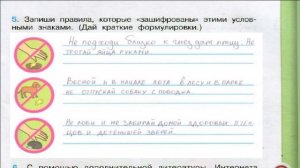 5. Запиши правила, которые «зашифрованы» этими услов-
ными знаками. (Дай краткие формулировки.)
Не подходи близко к гнёздам птиц. Не
трогай яйца руками.
Весной и в начале лета в лесу и в парке
не отпускай собаку с поводка.
Не лови и не забирай домой здоровых птен
цов и детёнышей зверей.
6. С помощью дополнительной литературы, Интернета